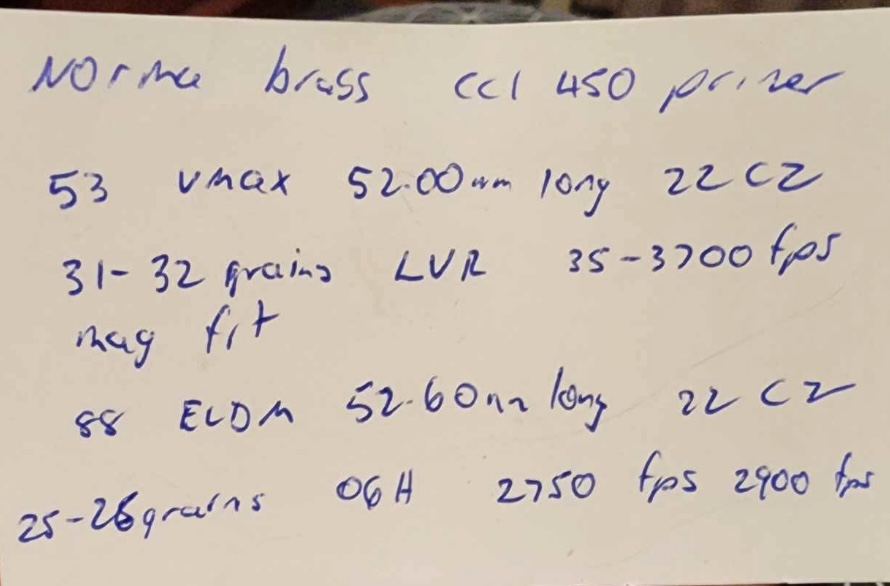 Norma brass CCI 450 primer
53 vmax 52.00mm long 22 CZ
31-32 grains LVR 35-3700 fps
mag fit
88 ELDM 52.60mm long 22 CZ
25-26grains OGH 2750 fps 2900 fps